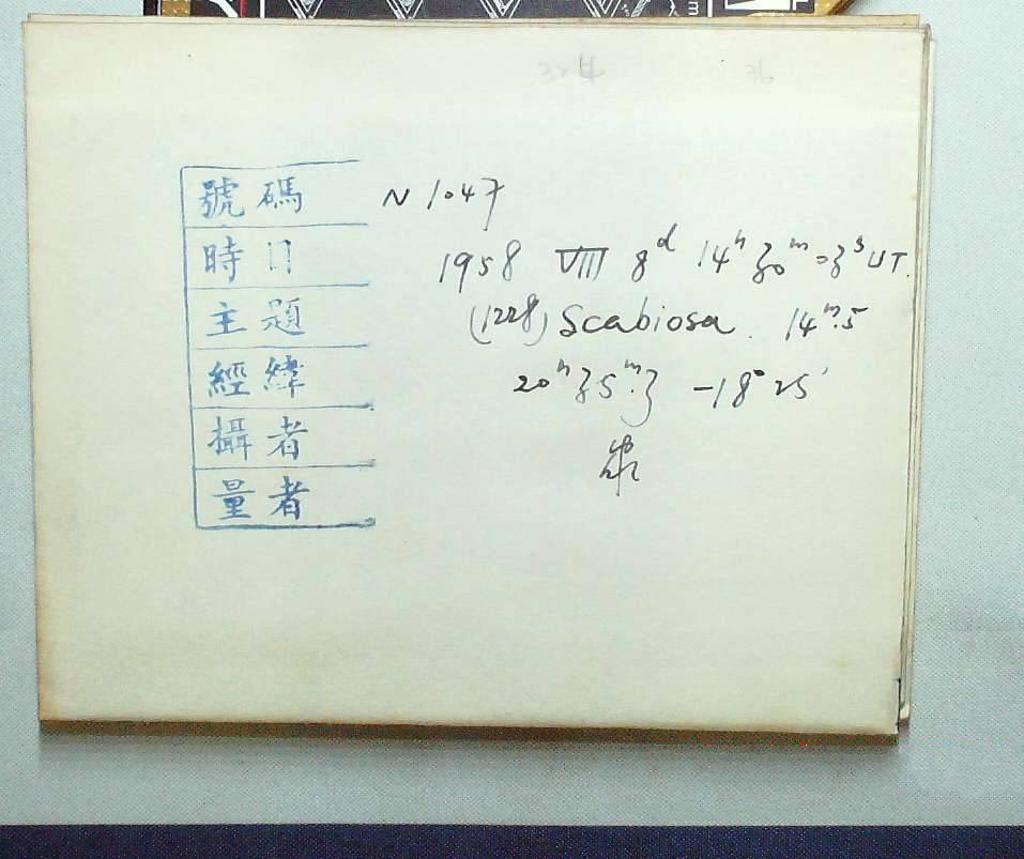 號碼 N 1047
時日 1958 VIII 8d 14h 30m 03s UT.
主題 (1228) Scabiosa. 14m.5
經緯 20h 35m.3 -18° 25'
攝者
量者